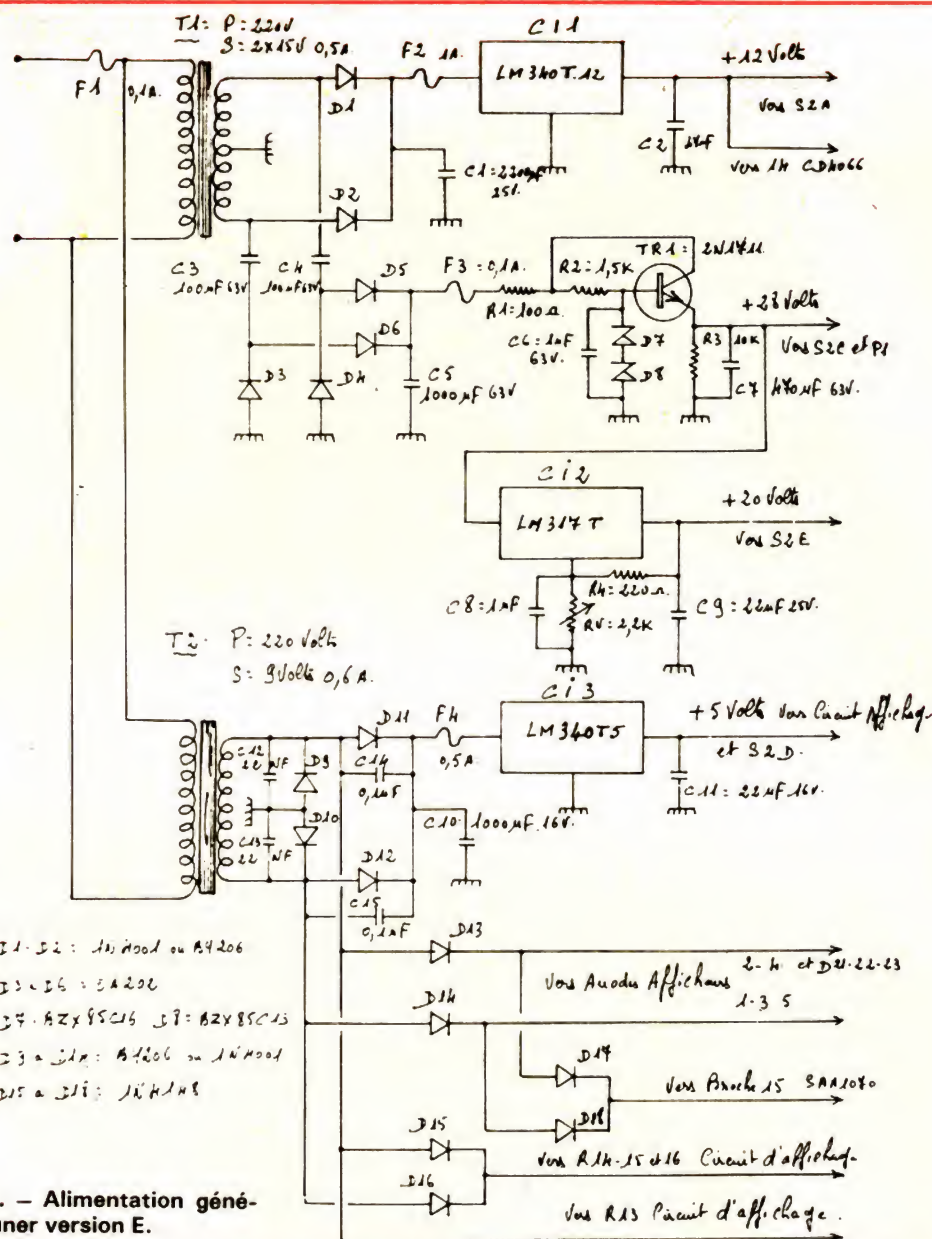 T1: P: 220V
S: 2x15V 0,5A
F1
0,1A.
D1
F2 1A.
Ci1
LM340T.12
+12 Volts
Vers S2A
C2
Vers 14 CD4066
C1 = 2200µF
25V.
D2
C3
1000µF 63V
C4
1000µF 63V
D5
D6
F3 = 0,1A.
R1 = 100Ω
R2 = 1,5K
TR1 = 2N1711
+28 Volts
Vers S2C et P1
C6 = 1µF
63V.
D7
D8
R3
10K
C7
470µF 63V.
D3
D4
C5
1000µF 63V
Ci2
LM317T
+20 Volts
Vers S2E
R4 = 220Ω.
C8 = 1µF
RV = 2,2K
C9 = 22µF 25V.
T2. P: 220 Volts
S: 9Volts 0,6A.
Ci3
LM340T5
+5 Volts Vers Circuit Affichage
et S2D.
D11
F4
0,5A.
C12
22 NF
D9
C14
0,1µF
C11 = 22µF 16V.
D10
C10. 1000µF. 16V.
C13
22 NF
D12
C15
0,1µF
D13
2-4 et D21-22-23
Vers Anodes Afficheurs
1-3 5
D14
D17
Vers Broche 15 SAA1070
D18
D15
Vers R14-15 et 16 Circuit d'affichage
D16
Vers R13 Circuit d'affichage.
D1-D2: 1N4001 ou BY206
D7. BZX85C15 D8: BZX85C13
D9 a D14: BY206 ou 1N4001
D15 a D18: 1N4148
. – Alimentation géné-
uner version E.